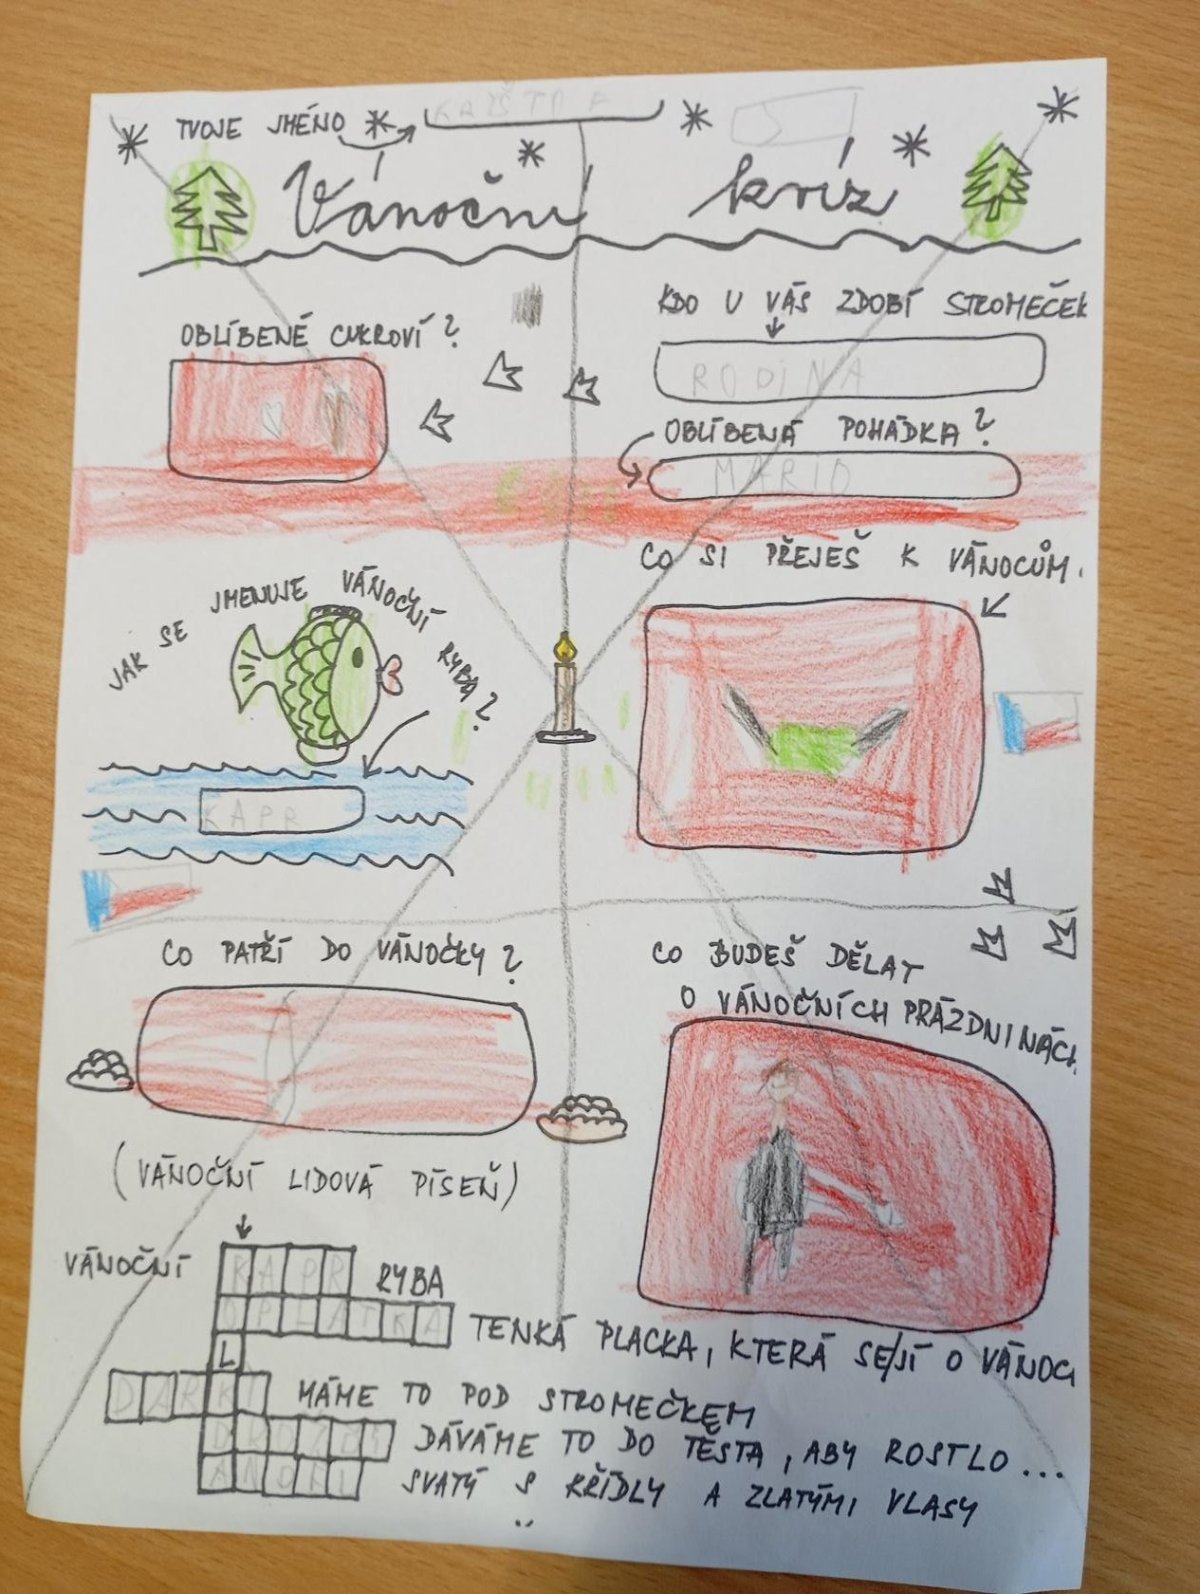 TVOJE JMÉNO
KRIŠTOF
Vánoční kvíz
OBLÍBENÉ CUKROVÍ?
KDO U VÁS ZDOBÍ STROMEČEK
RODINA
OBLÍBENÁ POHÁDKA?
MARIO
CO SI PŘEJEŠ K VÁNOCŮM.
JAK SE JMENUJE VÁNOČNÍ RYBA?
KAPR
CO PATŘÍ DO VÁNOČKY?
CO BUDEŠ DĚLAT
O VÁNOČNÍCH PRÁZDNINÁCH
(VÁNOČNÍ LIDOVÁ PÍSEŇ)
VÁNOČNÍ KAPR RYBA
OPLATKA TENKÁ PLACKA, KTERÁ SE JÍ O VÁNOC
L
DÁRKY MÁME TO POD STROMEČKEM
DÁVÁME TO DO TĚSTA, ABY ROSTLO...
ANDĚL SVATÝ S KŘÍDLY A ZLATÝMI VLASY